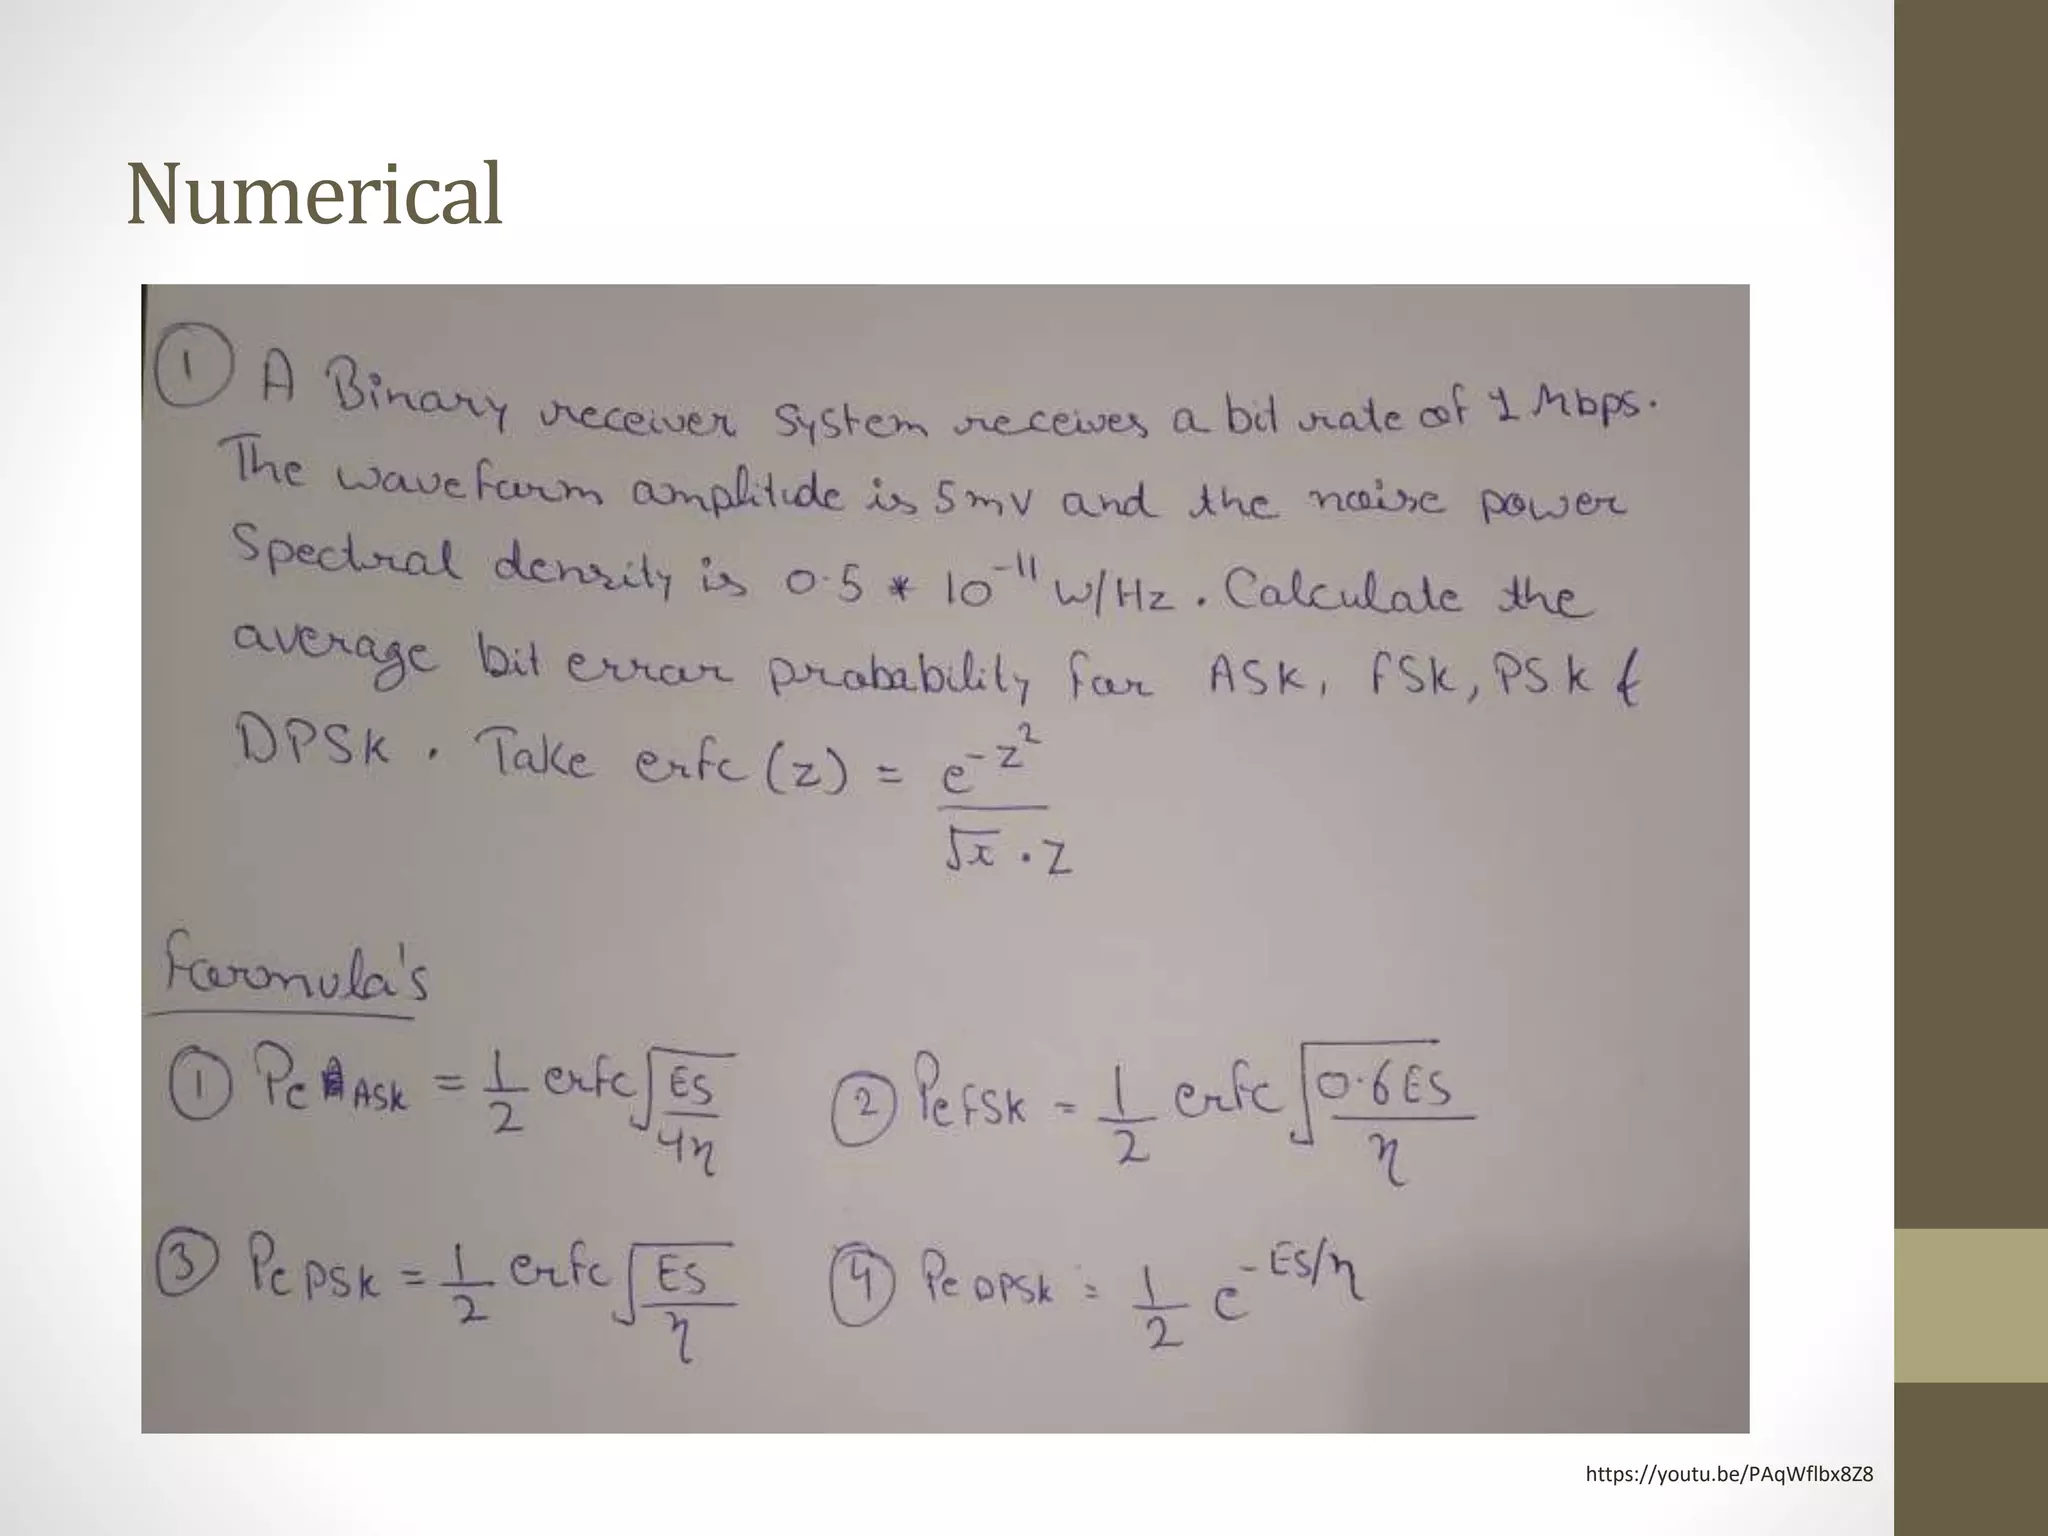 Numerical
① A Binary receiver system receives a bit rate of 1 Mbps.
The waveform amplitude is 5mV and the noise power
Spectral density is 0.5 * 10⁻¹¹ W/Hz. Calculate the
average bit error probability for ASK, FSK, PSK &
DPSK. Take erfc(z) = e^-z² / √π . z
Formula's
① Pe ASK = 1/2 erfc √(Es/4η) ② Pe FSK = 1/2 erfc √(0.6Es/η)
③ Pe PSK = 1/2 erfc √(Es/η) ④ Pe DPSK = 1/2 e^-Es/η
https://youtu.be/PAqWflbx8Z8